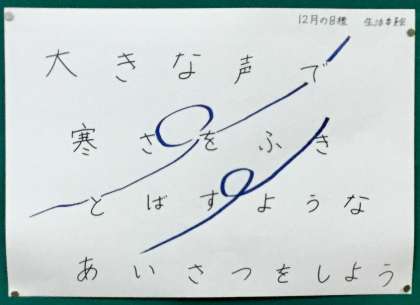 12月の目標 生活委員会
大きな声で
寒さをふき
とばすような
あいさつをしよう